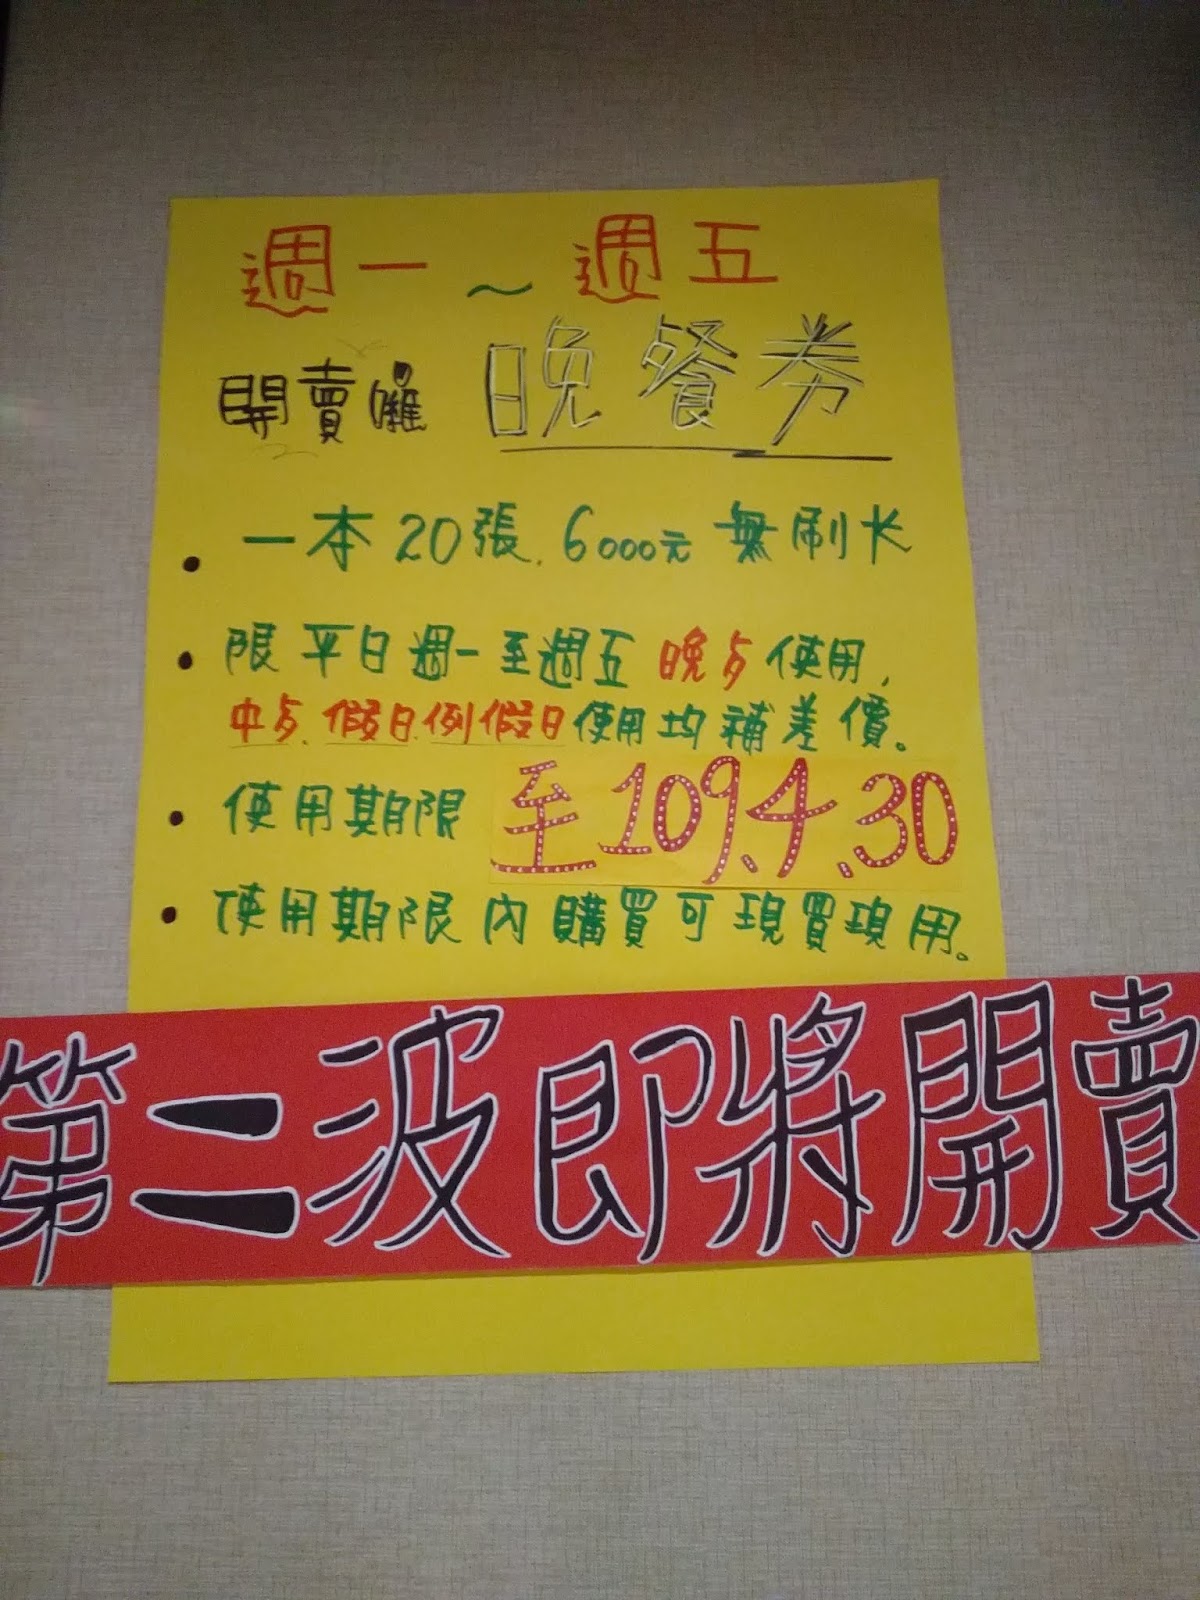 週一～週五
開賣囉 晚餐券
• 一本20張, 6000元 無刷卡
• 限平日週一至週五 晚歺 使用,
中歺, 假日, 例假日使用均補差價。
• 使用期限 至109.4.30
• 使用期限內購買可現買現用。
第二波即將開賣